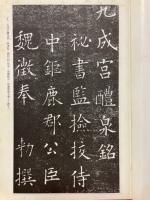 九成宮醴泉銘
祕書監撿挍侍
中鉅鹿郡公臣
魏徵奉　勑撰